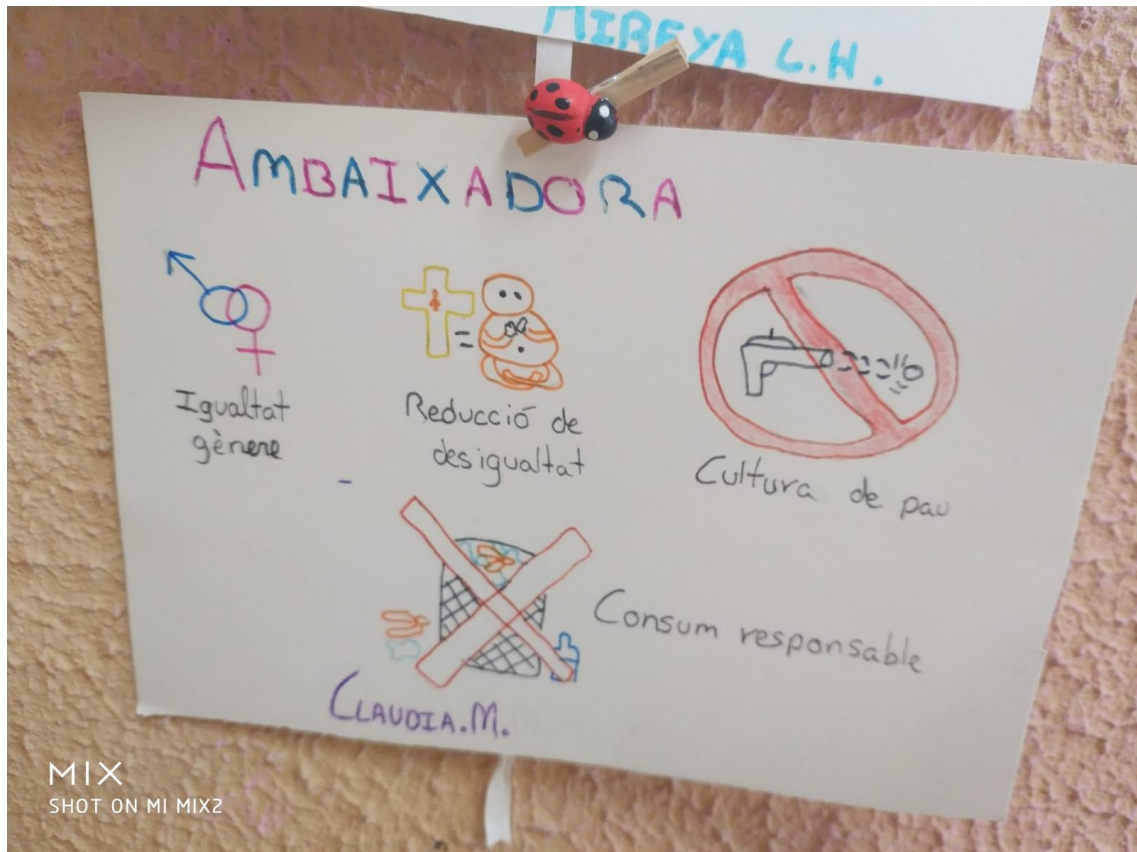 MIREYA L.H.
AMBAIXADORA
Igualtat
gènere
Reducció de
desigualtat
Cultura de pau
Consum responsable
CLAUDIA.M.
MIX
SHOT ON MI MIX2